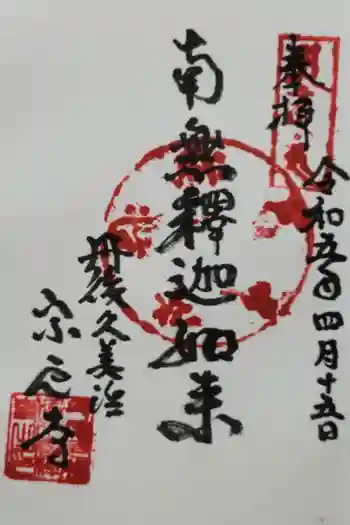 奉拝
令和五年四月十五日
南無釋迦如来
丹後久美浜
宗雲寺